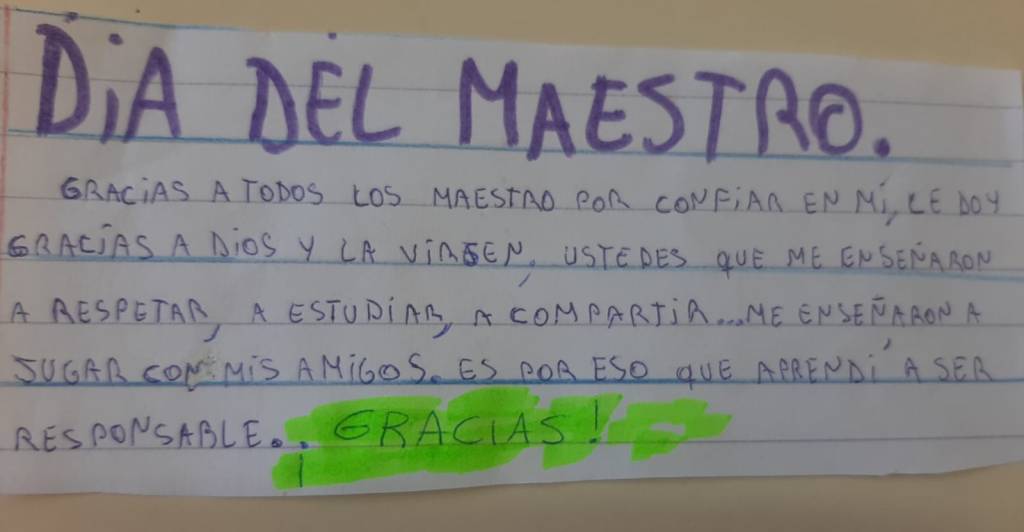 DiA DEL MAESTRO.
GRACIAS A TODOS LOS MAESTRO POR CONFIAR EN MÍ, LE DOY
GRACIAS A DIOS Y LA VIRGEN, USTEDES QUE ME ENSEÑARON
A RESPETAR, A ESTUDIAR, A COMPARTIR...ME ENSEÑARON A
JUGAR CON MIS AMIGOS. ES POR ESO QUE APRENDÍ A SER
RESPONSABLE.. ¡GRACIAS!